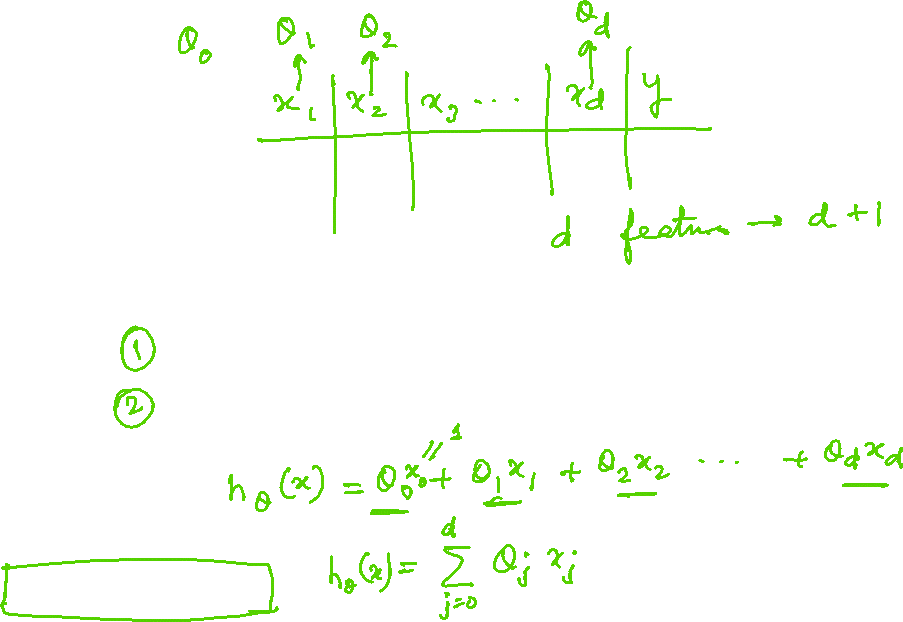 θ₀ θ₁ θ₂ θd
x₁ x₂ x₃ ... xd y
d features → d + 1
①
②
hθ(x) = θ₀x₀ + θ₁x₁ + θ₂x₂ ... + θdxd
1
hθ(x) = Σ_{j=0}^{d} θⱼ xⱼ